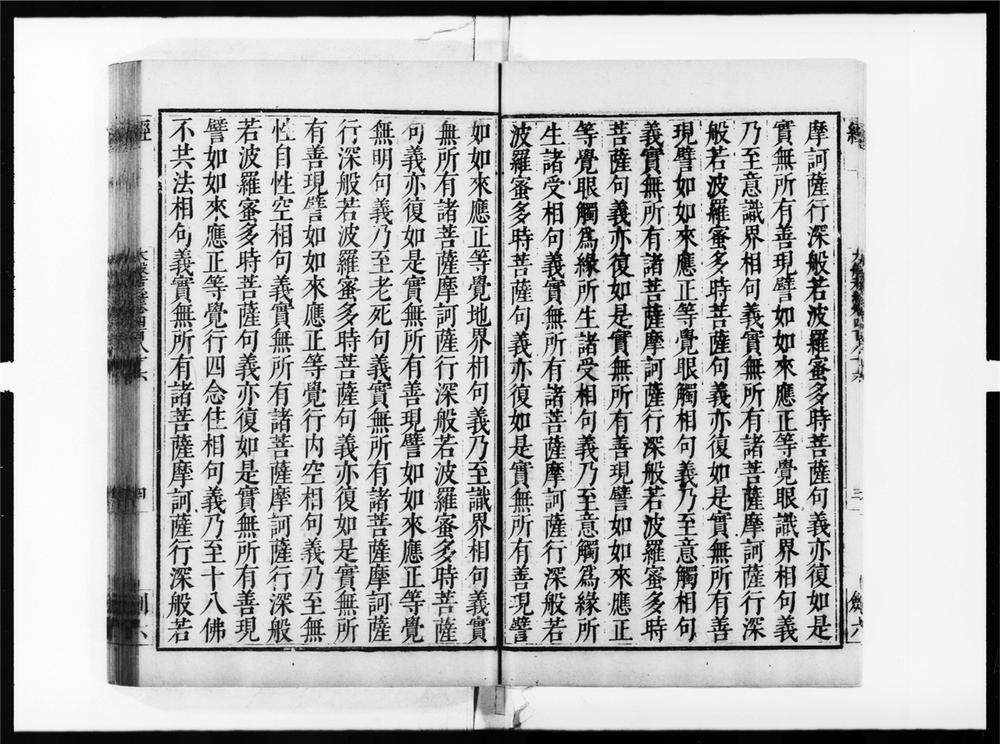 摩訶薩行深般若波羅蜜多時菩薩句義亦復如是
實無所有善現譬如如來應正等覺眼識界相句義
乃至意識界相句義實無所有諸菩薩摩訶薩行深
般若波羅蜜多時菩薩句義亦復如是實無所有善
現譬如如來應正等覺眼觸相句義乃至意觸相句
義實無所有諸菩薩摩訶薩行深般若波羅蜜多時
菩薩句義亦復如是實無所有善現譬如如來應正
等覺眼觸爲緣所生諸受相句義乃至意觸爲緣所
生諸受相句義實無所有諸菩薩摩訶薩行深般若
波羅蜜多時菩薩句義亦復如是實無所有善現譬
如如來應正等覺地界相句義乃至識界相句義實
無所有諸菩薩摩訶薩行深般若波羅蜜多時菩薩
句義亦復如是實無所有善現譬如如來應正等覺
無明句義乃至老死句義實無所有諸菩薩摩訶薩
行深般若波羅蜜多時菩薩句義亦復如是實無所
有善現譬如如來應正等覺行内空相句義乃至無
性自性空相句義實無所有諸菩薩摩訶薩行深般
若波羅蜜多時菩薩句義亦復如是實無所有善現
譬如如來應正等覺行四念住相句義乃至十八佛
不共法相句義實無所有諸菩薩摩訶薩行深般若
經